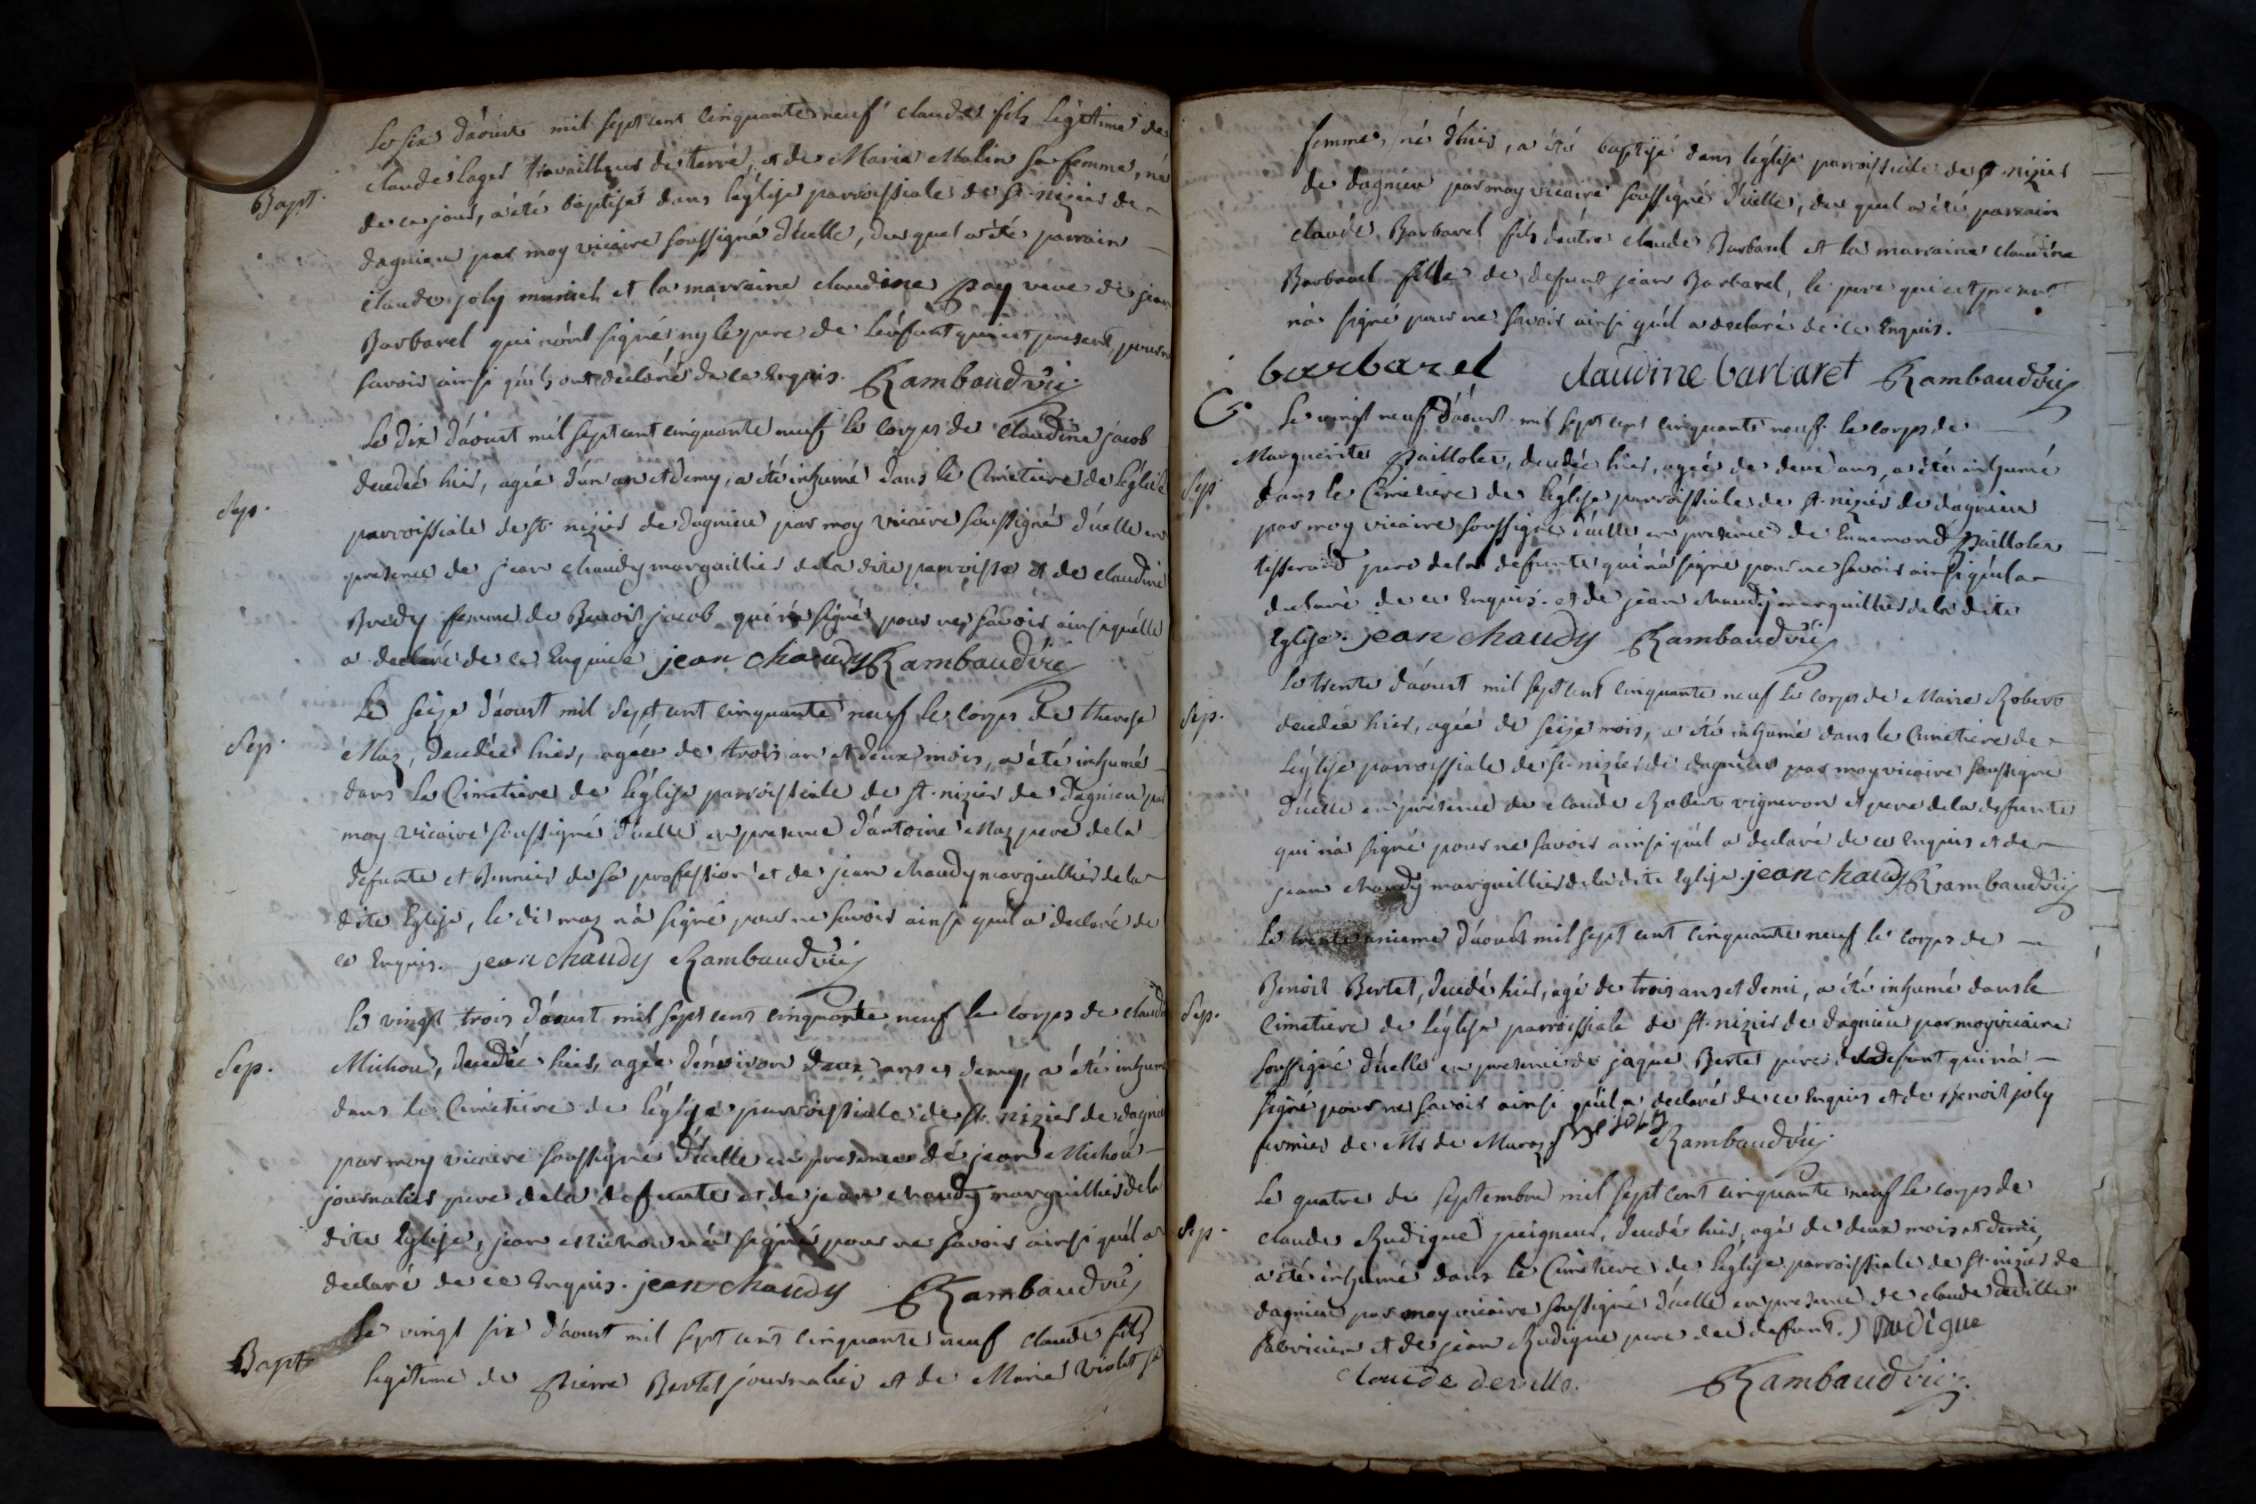 Le six d'aoust mil sept cent cinquante neuf claude fils légitime de
Bapt.
claude lager travailleur de terre, et de Marie Molin sa femme, né
de ce jour, a été baptisé dans l'église parroissiale de st. nizier de
dagnieu par moy vicaire soussigné d'icelle, du quel a été parrain
claude joly et la marraine claudine pay veuve de jean
Barbarel qui n'ont signés ny le pere de l'enfant qui est present, pour ne
savoir ainsi qu'ils ont declarés de ce enquis. Rambaud vic.
Le dix d'aoust mil sept cent cinquante neuf le corps de claudine jacob
Sep.
decedée hier, agée d'un an et demy, a été inhumé dans le Cimetiere de l'église
parroissiale de st. nizier de dagnieu par moy vicaire soussigné d'icelle en
presence de jean chaudy marguillier de la dite parroisse et de claudine
Bredy femme de Benoit jacob qui n'a signé pour ne savoir ainsi qu'elle
a declaré de ce Enquise jean chaudy Rambaud vic.
Le seize d'aoust mil sept cent cinquante neuf le corps de therese
Sep.
Maz, decedée hier, agée de trois an et deux mois, a été inhumé
dans le Cimetiere de l'église parroissiale de st. nizier de dagnieu par
moy vicaire soussigné d'icelle en presence d'antoine Maz pere de la
defunte et de sa profession et de jean chaudy marguillier de la
dite Eglise, le di maz n'a signé pour ne savoir ainsi qu'il a declaré de
ce Enquis. jean chaudy Rambaud vic.
Le vingt trois d'aoust mil sept cent cinquante neuf le corps de claude
Sep.
Michon, decedée hier, agée d'environ deux ans et demy, a été inhumé
dans le Cimetiere de l'église parroissiale de st. nizier de dagnieu
par moy vicaire soussigné d'icelle en presence de jean Michon
journalier pere de la defunte et de jean chaudy marguillier de la
dite Eglise, jean Michon n'a signé pour ne savoir ainsi qu'il a
declaré de ce Enquis. jean chaudy Rambaud vic.
Le vingt six d'aoust mil sept cent cinquante neuf claude fils
Bapt.
legitime de Pierre Bertet journalier et de Marie Violet sa
femme, né d'hier, a été baptisé dans l'église parroissiale de st. nizier
de dagnieu par moy vicaire soussigné d'icelle, du quel a été parrain
claude Barbarel fils d'autre claude Barbarel et la marraine claudine
Barbarel fille de defunt jean Barbarel, le pere qui est present
n'a signé pour ne savoir ainsi qu'il a declaré de ce Enquis.
barbarel claudine barbaret Rambaud vic.
Le vingt neuf d'aoust mil sept cent cinquante neuf le corps de
Marguerite Paillolet, decedée hier, agée de deux ans, a été inhumé
Sep.
dans le Cimetiere de l'église parroissiale de st. nizier de dagnieu
par moy vicaire soussigné d'icelle en presence de Ennemond Paillolet
tisserand pere de la defunte qui n'a signé pour ne savoir ainsi qu'il a
declaré de ce Enquis. et de jean chaudy marguillier de la dite
Eglise. jean chaudy Rambaud vic.
Le trente d'aoust mil sept cent cinquante neuf le corps de Marie Robert
Sep.
decedée hier, agée de seize mois, a été inhumé dans le Cimetiere de
l'église parroissiale de st. nizier de dagnieu par moy vicaire soussigné
d'icelle en presence de claude Robert vigneron et pere de la defunte
qui n'a signé pour ne savoir ainsi qu'il a declaré de ce Enquis et de
jean chaudy marguillier de la dite Eglise jean chaudy Rambaud vic.
Le trente unieme d'aoust mil sept cent cinquante neuf le corps de
Benoit Bertet, decedé hier, agé de trois ans et demi, a été inhumé dans le
Sep.
Cimetiere de l'église parroissiale de st. nizier de dagnieu par moy vicaire
soussigné d'icelle en presence de jaque Bertet pere du defunt qui n'a
signé pour ne savoir ainsi qu'il a declaré de ce Enquis et de Benoit joly
fermier de Mr de joly Rambaud vic.
Le quatre de septembre mil sept cent cinquante neuf le corps de
Sep.
claude Rudigue peigneur, decedé hier, agé de deux mois et demi,
a été inhumé dans le Cimetiere de l'église parroissiale de st. nizier de
dagnieu par moy vicaire soussigné d'icelle en presence de claude deville
fabricien et de jean Rudigue pere de defunt. J Rudigue
claude deville. Rambaud vic.